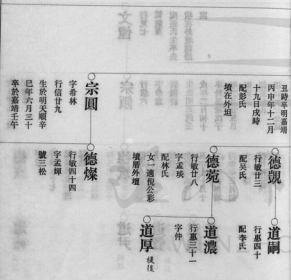 丑時卒明嘉靖
丙申年十二月
十九日戌時
配彭氏
墳在外坦
德覬
行敏廿三
配吳氏
道嗣
行惠四十
配李氏
德菀
行敏廿八
字孟瑛
配林氏
女一適倪公彩
墳厝外壇
道濃
行惠三十一
字仲
道厚
後俊
宗圓
字希林
行信廿九
生於明天順辛
巳年六月三十
卒於嘉靖壬午
德燦
行敏四十四
字孟輝
號三松